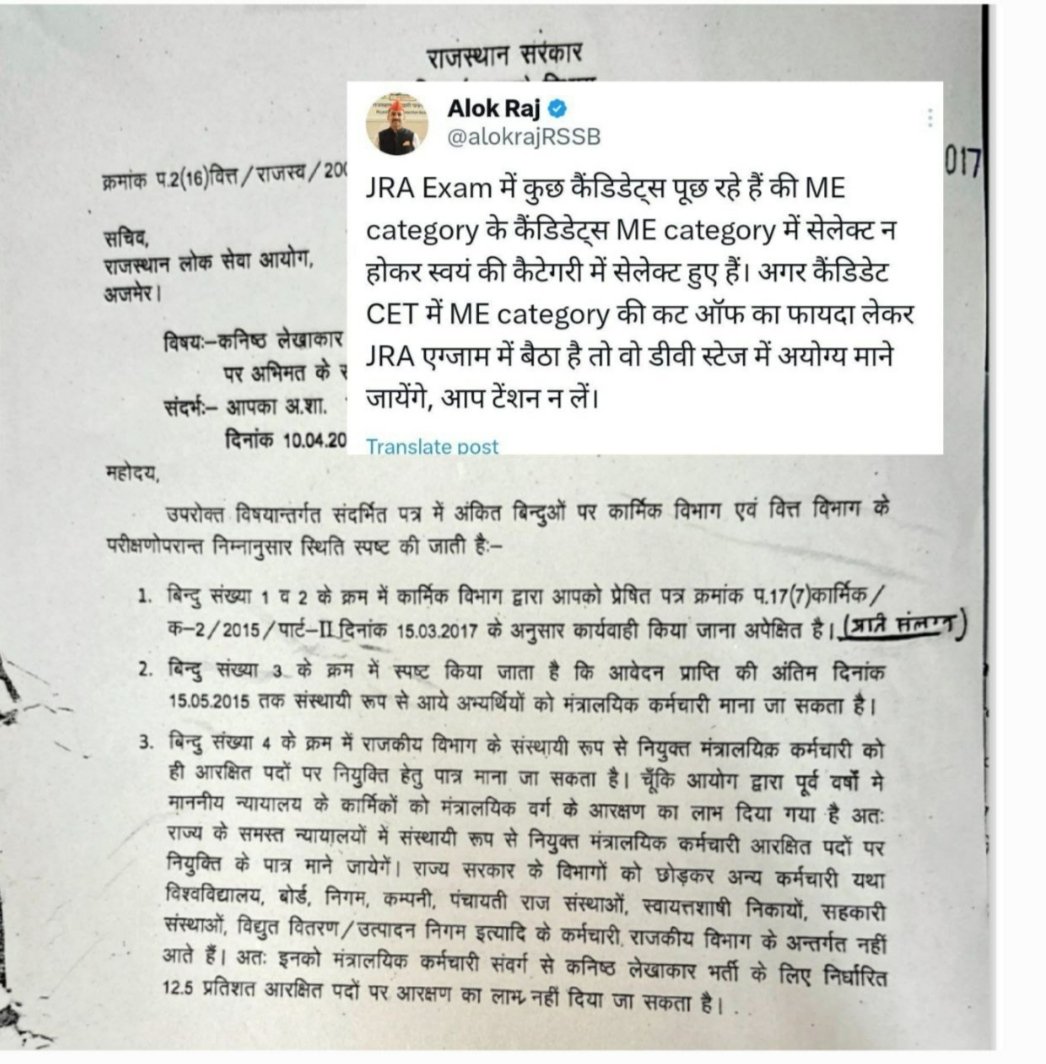 राजस्थान सरकार
Alok Raj
@alokrajRSSB
JRA Exam में कुछ कैंडिडेट्स पूछ रहे हैं की ME
category के कैंडिडेट्स ME category में सेलेक्ट न
होकर स्वयं की कैटेगरी में सेलेक्ट हुए हैं। अगर कैंडिडेट
CET में ME category की कट ऑफ का फायदा लेकर
JRA एग्जाम में बैठा है तो वो डीवी स्टेज में अयोग्य माने
जायेंगे, आप टेंशन न लें।
Translate post
क्रमांक प.2(16)वित्त/राजस्व/200
017
सचिव,
राजस्थान लोक सेवा आयोग,
अजमेर।
विषयः–कनिष्ठ लेखाकार
पर अभिमत के
संदर्भः– आपका अ.शा.
दिनांक 10.04.20
महोदय,
उपरोक्त विषयान्तर्गत संदर्भित पत्र में अंकित बिन्दुओं पर कार्मिक विभाग एवं वित्त विभाग के
परीक्षणोपरान्त निम्नानुसार स्थिति स्पष्ट की जाती हैः–
1. बिन्दु संख्या 1 व 2 के क्रम में कार्मिक विभाग द्वारा आपको प्रेषित पत्र क्रमांक प.17(7)कार्मिक/
क–2/2015/पार्ट–II दिनांक 15.03.2017 के अनुसार कार्यवाही किया जाना अपेक्षित है। (प्रति संलग्न)
2. बिन्दु संख्या 3 के क्रम में स्पष्ट किया जाता है कि आवेदन प्राप्ति की अंतिम दिनांक
15.05.2015 तक संस्थायी रूप से आये अभ्यर्थियों को मंत्रालयिक कर्मचारी माना जा सकता है।
3. बिन्दु संख्या 4 के क्रम में राजकीय विभाग के संस्थायी रूप से नियुक्त मंत्रालयिक कर्मचारी को
ही आरक्षित पदों पर नियुक्ति हेतु पात्र माना जा सकता है। चूँकि आयोग द्वारा पूर्व वर्षों मे
माननीय न्यायालय के कार्मिकों को मंत्रालयिक वर्ग के आरक्षण का लाभ दिया गया है अतः
राज्य के समस्त न्यायालयों में संस्थायी रूप से नियुक्त मंत्रालयिक कर्मचारी आरक्षित पदों पर
नियुक्ति के पात्र माने जायेगें। राज्य सरकार के विभागों को छोड़कर अन्य कर्मचारी यथा
विश्वविद्यालय, बोर्ड, निगम, कम्पनी, पंचायती राज संस्थाओं, स्वायत्तशाषी निकायों, सहकारी
संस्थाओं, विद्युत वितरण/उत्पादन निगम इत्यादि के कर्मचारी राजकीय विभाग के अन्तर्गत नहीं
आते हैं। अतः इनको मंत्रालयिक कर्मचारी संवर्ग से कनिष्ठ लेखाकार भर्ती के लिए निर्धारित
12.5 प्रतिशत आरक्षित पदों पर आरक्षण का लाभ नहीं दिया जा सकता है।